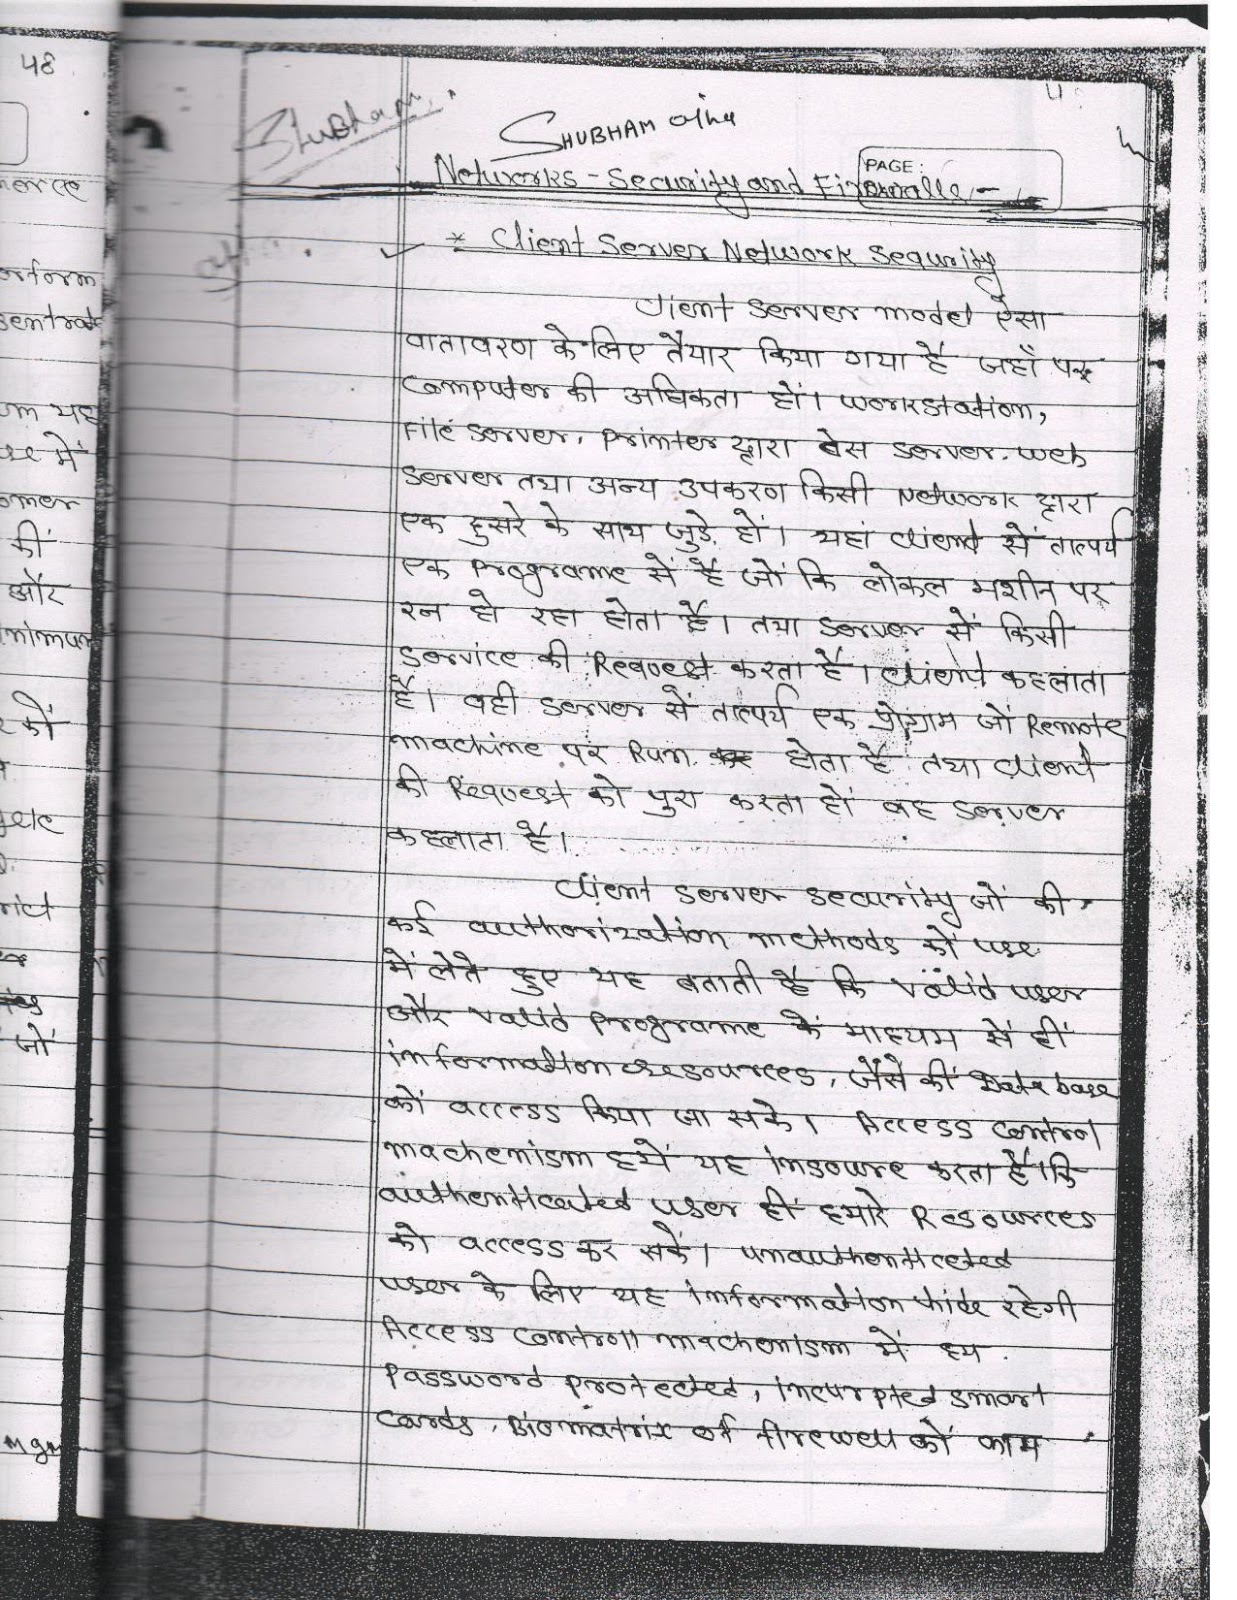 48
Shubham
SHUBHAM ojha
PAGE:
Networks - Security and Firewalls -
* Client Server Network Sequrity
Client Server model ऐसा
वातावरण के लिए तैयार किया गया है जहाँ पर
Computer की अधिकता हो। workstation,
File server, printer द्वारा बेस server. web
server तथा अन्य उपकरण किसी Network द्वारा
एक दुसरे के साथ जुडे हों। यहां client सें तात्पर्य
एक programe सें है जों कि लोकल मशीन पर
रन हो रहा होता है। तथा server सें किसी
service की Request करता है। client कहलाता
है। वही server सें तात्पर्य एक प्रोग्राम जों Remote
machine पर Run होता है तथा client
की Request को पुरा करता हो वह server
कहलाता है।
Client server security जों की
कई authorization methods कों use
में लेते हुए यह बताती है कि valid user
और valid programe के माध्यम सें हीं
information resources, जैसे कीं Data base
कों access किया जा सके। Access control
machenism हमें यह insoure करता है। कि
authenticated user हीं हमारे Resources
को access कर सकें। unauthenticeted
user के लिए यह information hide रहेगी
Access controll machenism में हम
password protected, incurpted smart
cards, Biomatrix of firewell कों काम
merce
orform
sentrate
um यह
use में
omer
कीं
और
inimum
कों
जों
mgm